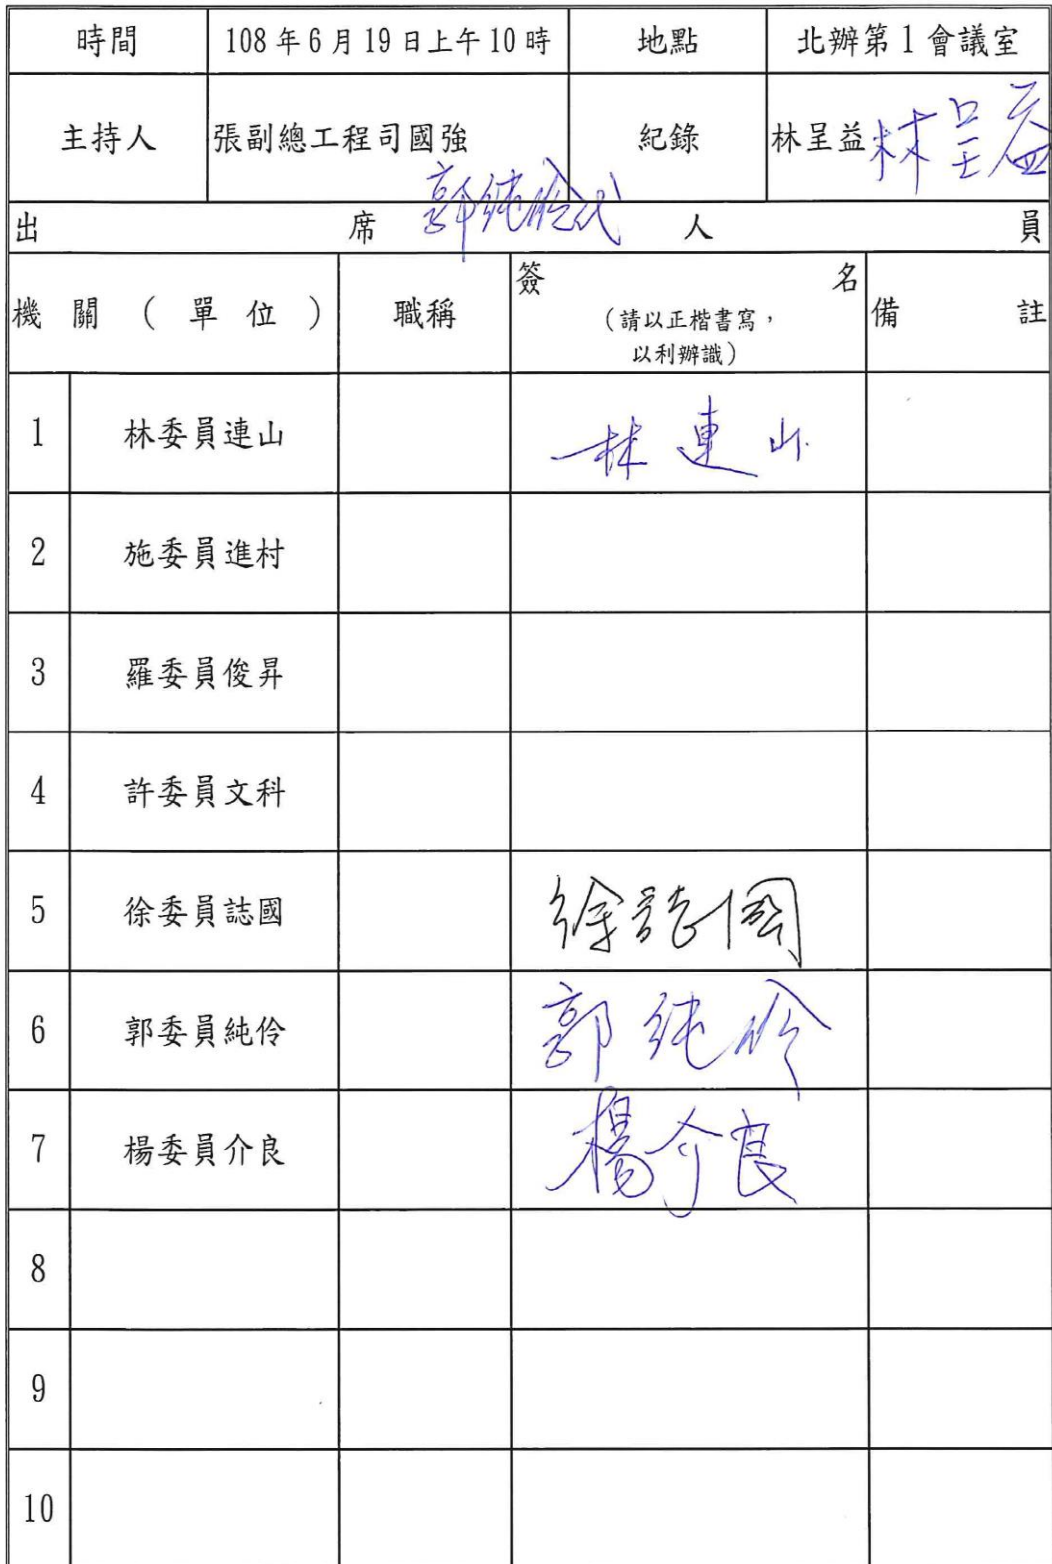 時間 108年6月19日上午10時 地點 北辦第1會議室
主持人 張副總工程司國強 紀錄 林呈益 林呈益
郭純伶代
出席人員
機關(單位) 職稱 簽名 備註
(請以正楷書寫,
以利辨識)
1 林委員連山 林連山
2 施委員進村
3 羅委員俊昇
4 許委員文科
5 徐委員誌國 徐誌國
6 郭委員純伶 郭純伶
7 楊委員介良 楊介良
8
9
10